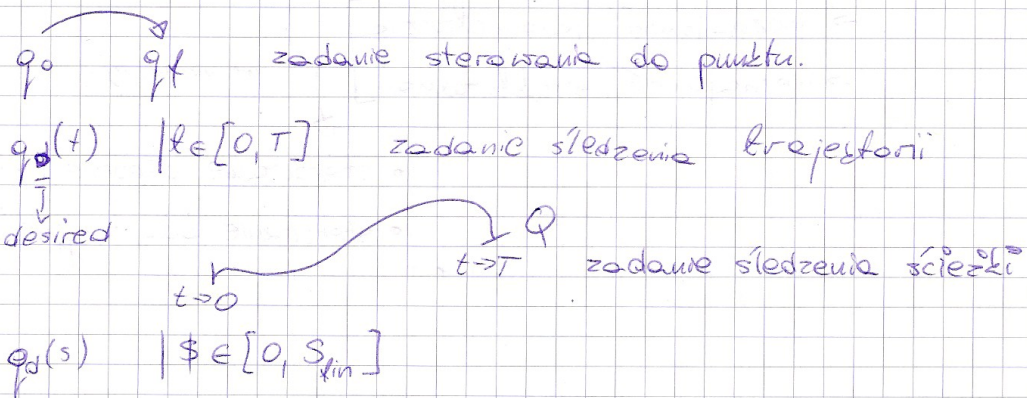 q₀ q_f zadanie sterowania do punktu.
q_d(t) | t ∈ [0, T] zadanie śledzenia trajektorii
desired
Q
t→0 t→T zadanie śledzenia ścieżki
q_d(s) | s ∈ [0, S_fin]